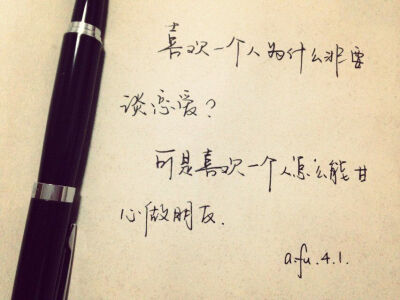 喜欢一个人为什么非要
谈恋爱?
可是喜欢一个人怎么能甘
心做朋友.
a.fu.4.1.